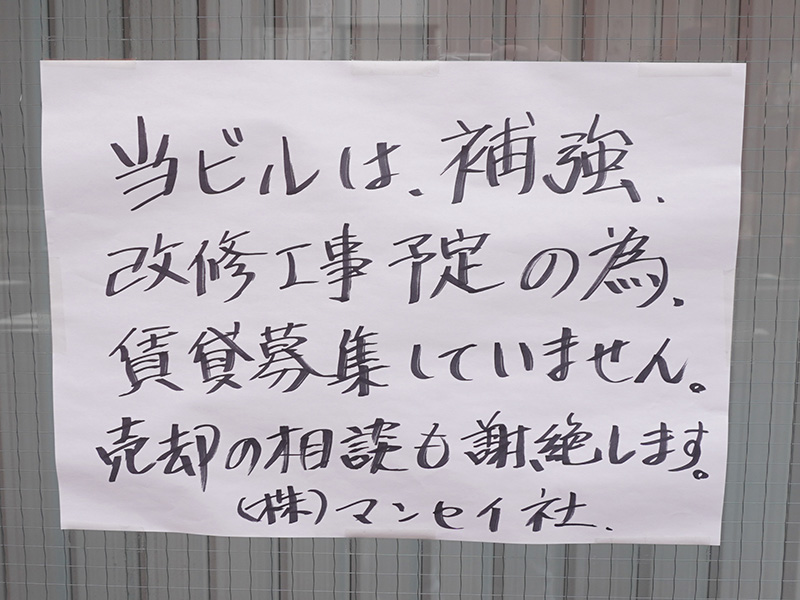 当ビルは、補強、
改修工事予定の為、
賃貸募集していません。
売却の相談も謝絶します。
(株)マンセイ社.